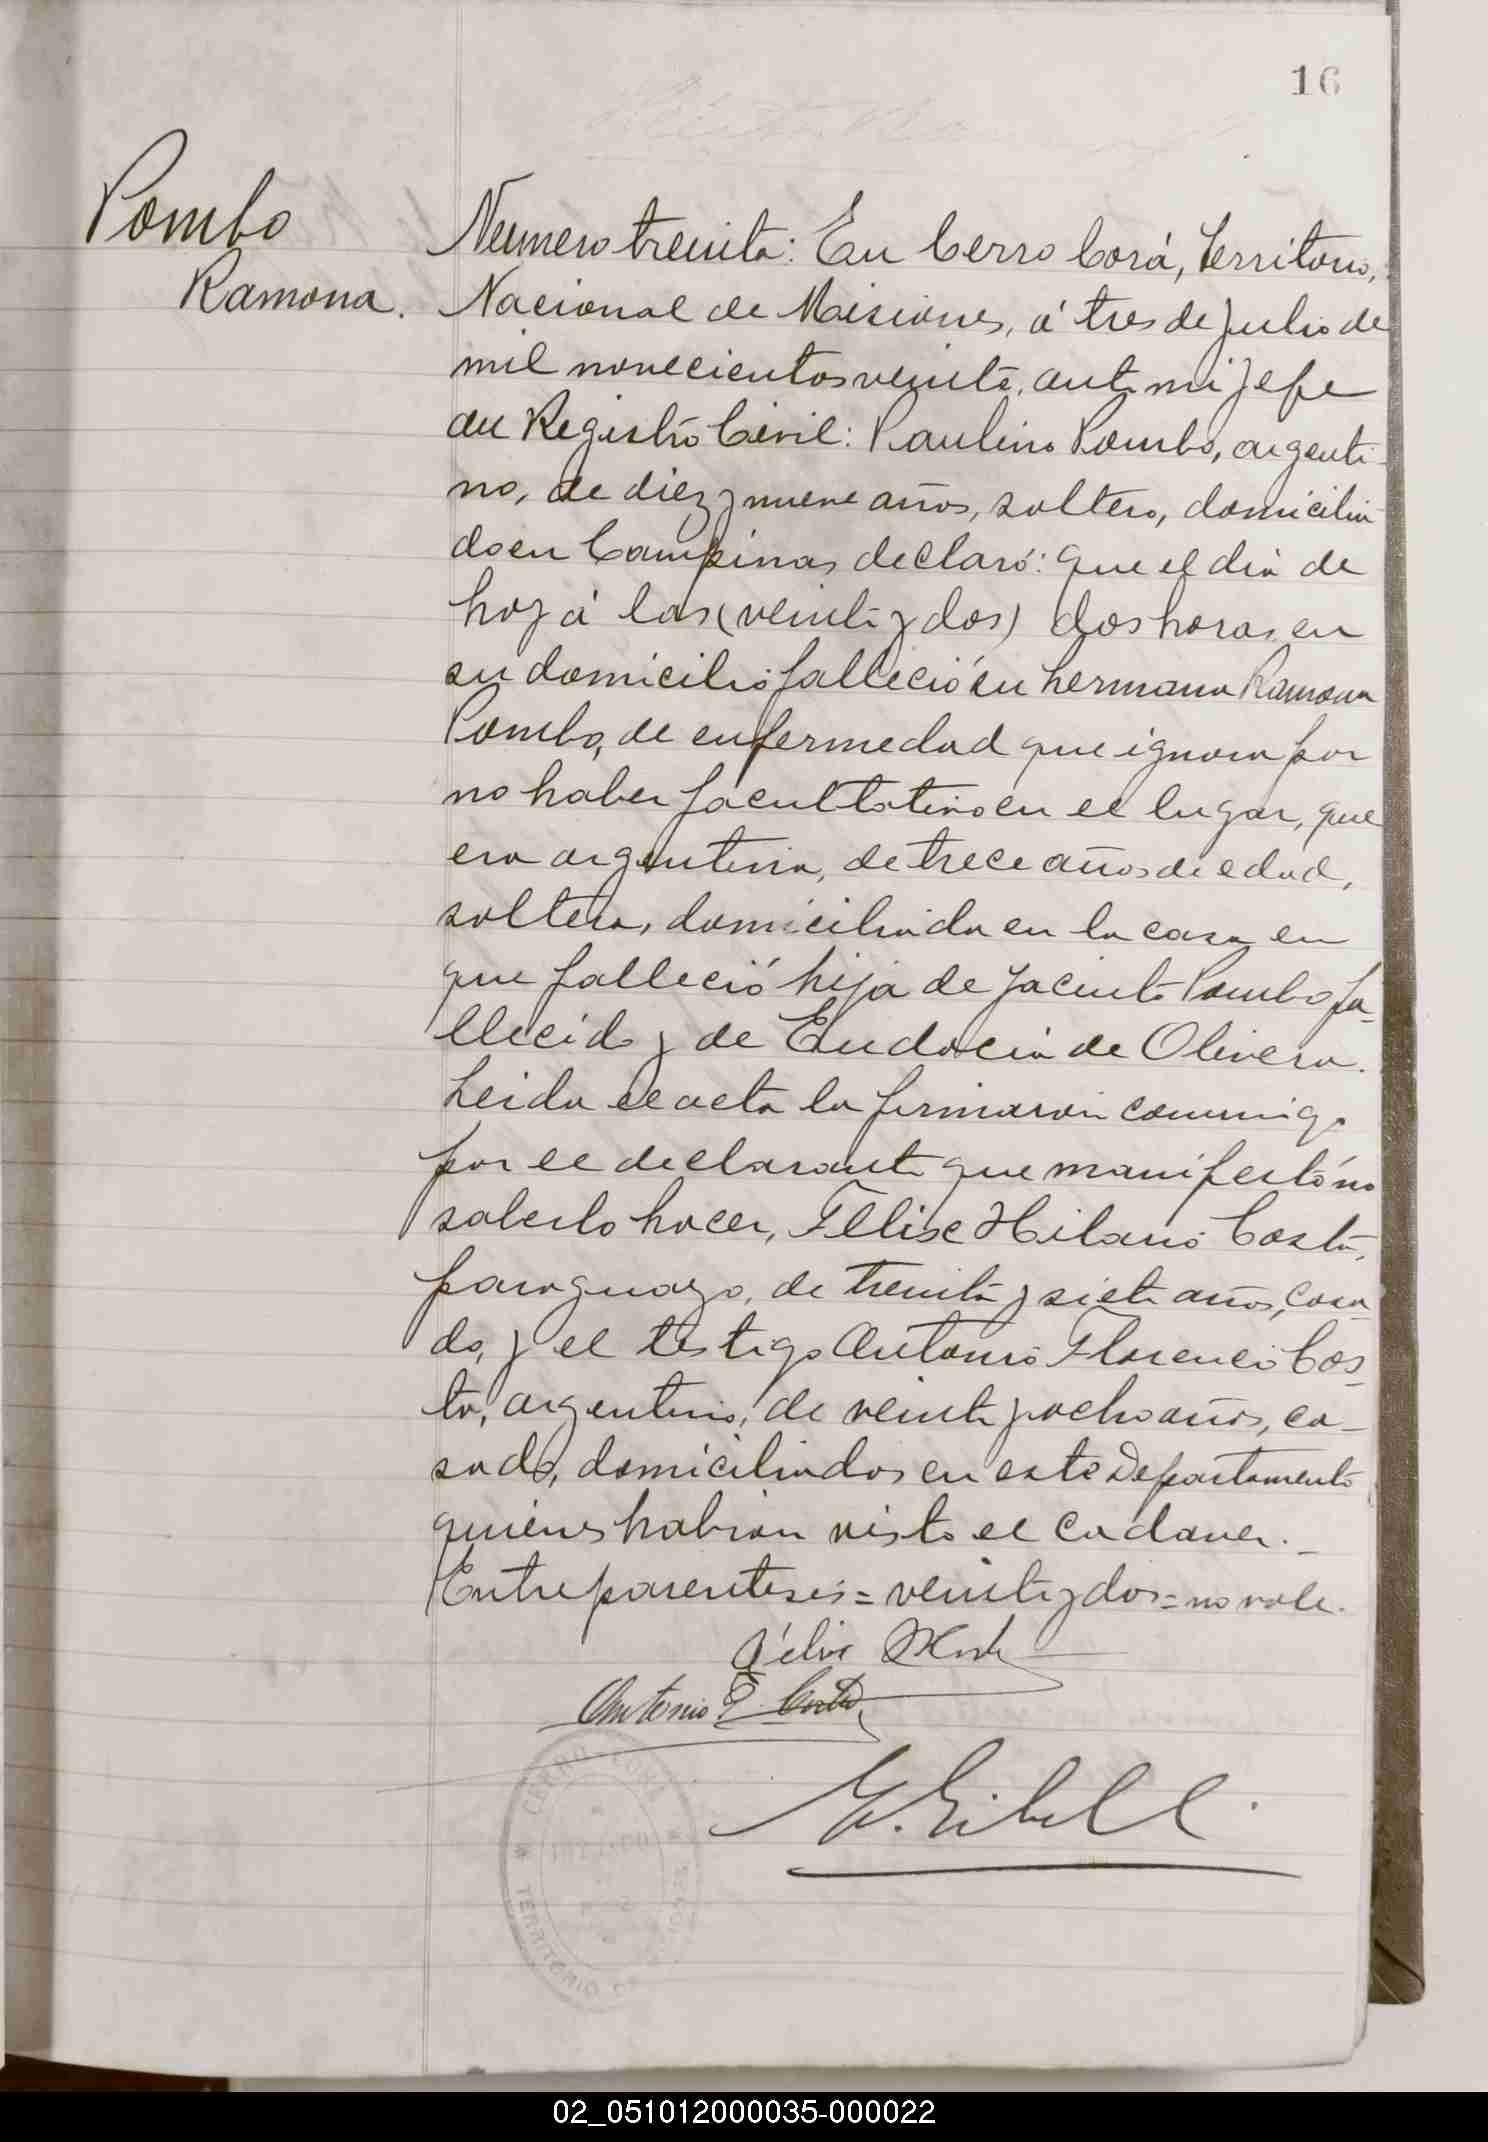 16
Pombo
Ramona.
Numero treinta: En Cerro Corá, Territorio,
Nacional de Misiones, á tres de Julio de
mil novecientos veinte, ante mi Jefe
del Registro Civil: Paulino Pombo, argenti-
no, de diez y nueve años, soltero, domicilia
do en Campinas declaró: que el dia de
hoy á las (veinti y dos) dos horas en
su domicilio falleció su hermana Ramona
Pombo, de enfermedad que ignora por
no haber facultativo en el lugar, que
era argentina, de trece años de edad,
soltera, domiciliada en la casa en
que falleció hija de Jacinto Pombo fa-
llecido y de Eudocia de Olivera.
Leida el acta la firmaron conmigo
por el declarante que manifestó no
saberlo hacer, Felix Hilario Costa,
paraguayo, de treinta y siete años, casa-
do, y el testigo Antonio Florencio Cos-
ta, argentino, de veinte y ocho años, ca-
sado, domiciliados en este Departamento
quienes habian visto el cadaver.-
Entre parentesis = veinti y dos = no vale.
Félix H Costa
Antonio F. Costa
CERRO CORÁ
TERRITORIO DE MISIONES
02_051012000035-000022